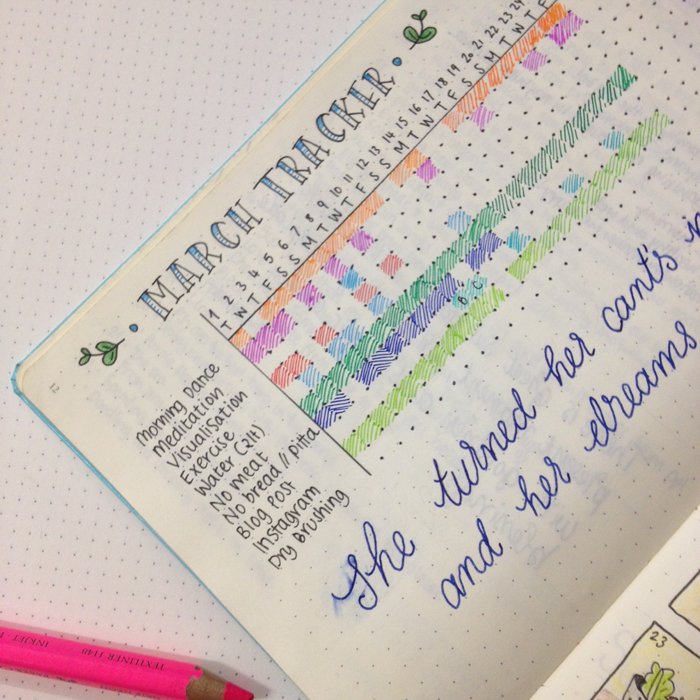 MARCH TRACKER
1 2 3 4 5 6 7 8 9 10 11 12 13 14 15 16 17 18 19 20 21 22 23 24
T W T F S S M T W T F S S M T W T F S S M T W T F
Morning Dance
Meditation
Visualisation
Exercise
Water (2lt)
No meat
No bread // pitta
Blog Post
Instagram
Dry brushing
B C
She turned her can'ts
and her dreams
12
23
TEXTLINER 1148
INKJET